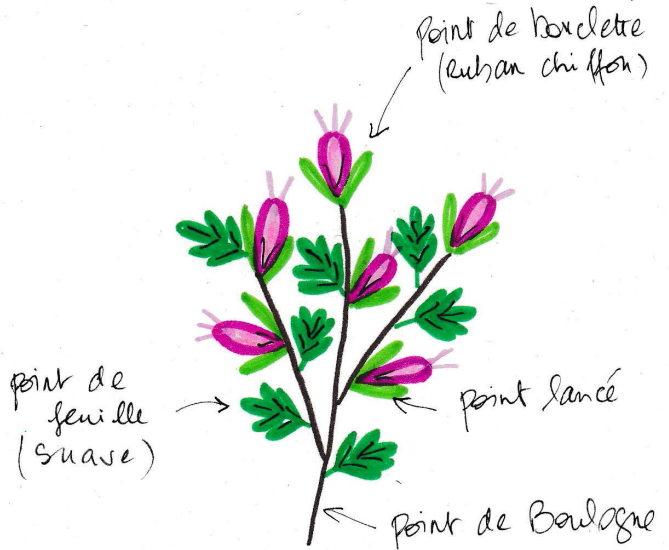 point de bouclette
(Ruban chiffon)
point de
feuille
(suave)
point lancé
point de Boulogne